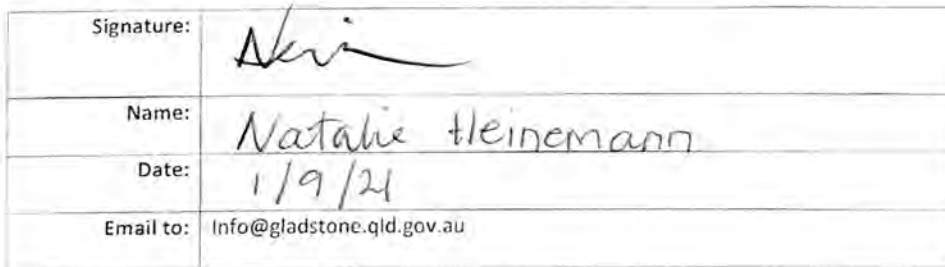 Signature:
Name: Natalie Heinemann
Date: 1/9/21
Email to: Info@gladstone.qld.gov.au